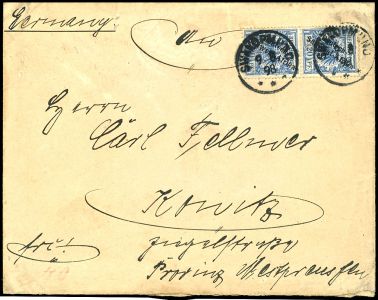 Germany.
An
Herrn
Carl Fellmer
Konitz
Ziegelstraße
Provinz Westpreussen
frei!